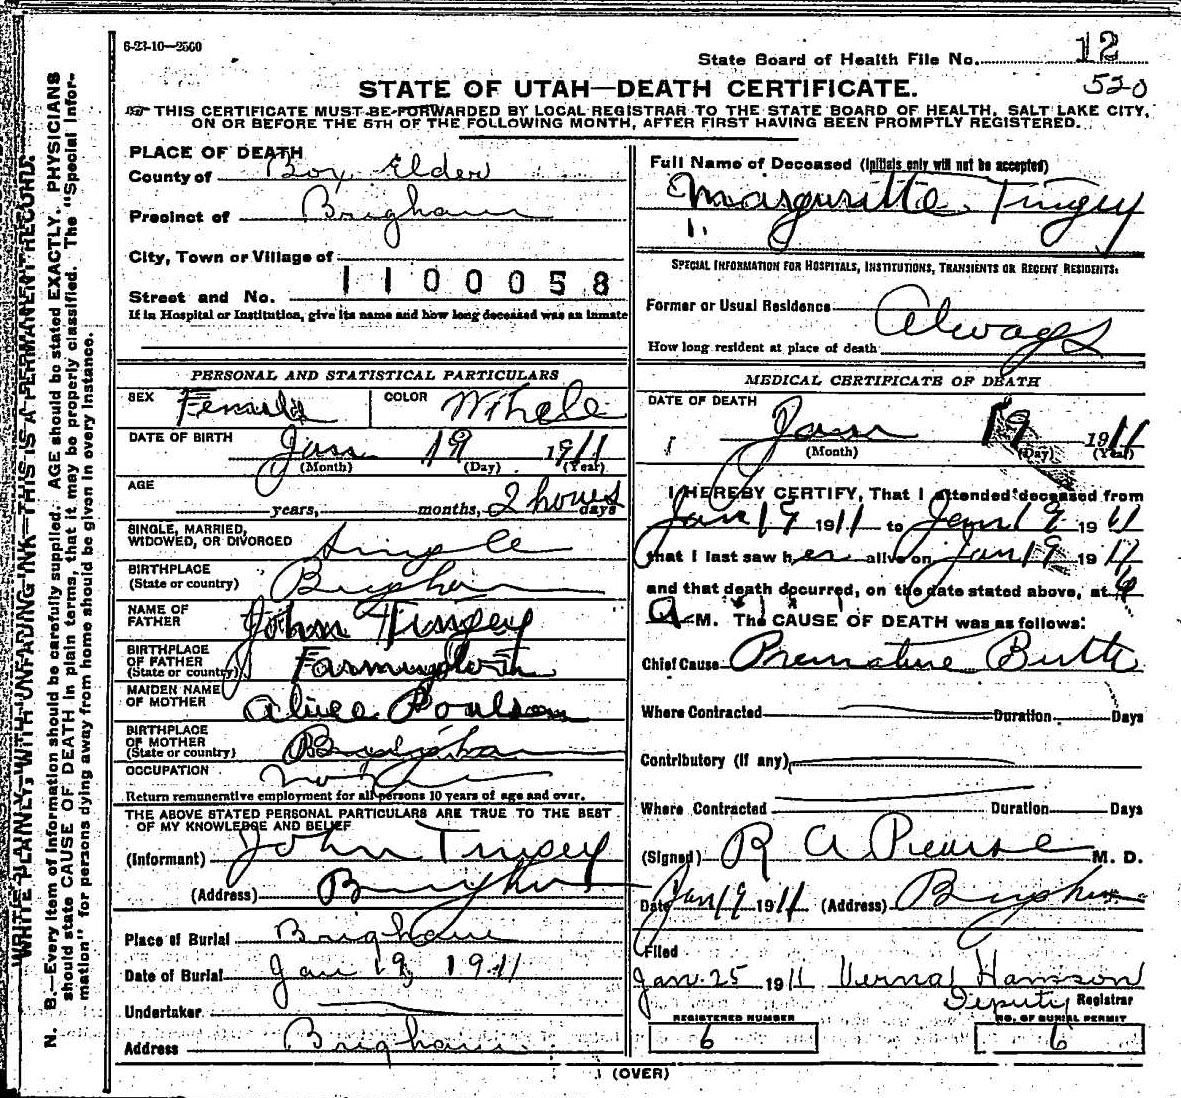 6-23-10—2500
State Board of Health File No. 12
520
STATE OF UTAH—DEATH CERTIFICATE.
THIS CERTIFICATE MUST BE FORWARDED BY LOCAL REGISTRAR TO THE STATE BOARD OF HEALTH, SALT LAKE CITY,
ON OR BEFORE THE 5TH OF THE FOLLOWING MONTH, AFTER FIRST HAVING BEEN PROMPTLY REGISTERED.
WRITE PLAINLY, WITH UNFADING INK—THIS IS A PERMANENT RECORD.
N. B.—Every item of information should be carefully supplied. AGE should be stated EXACTLY. PHYSICIANS
should state CAUSE OF DEATH in plain terms, that it may be properly classified. The "Special Infor-
mation" for persons dying away from home should be given in every instance.
PLACE OF DEATH
County of Box Elder
Precinct of Brigham
City, Town or Village of
1100058
Street and No.
If in Hospital or Institution, give its name and how long deceased was an inmate
PERSONAL AND STATISTICAL PARTICULARS
SEX Female COLOR
DATE OF BIRTH Jan 19 1911
(Month) (Day) (Year)
AGE
years, months, 2 hours days
SINGLE, MARRIED,
WIDOWED, OR DIVORCED Single
BIRTHPLACE
(State or country) Brigham
NAME OF
FATHER John Tingey
BIRTHPLACE
OF FATHER
(State or country) Farmington
MAIDEN NAME
OF MOTHER Alice Poulsen
BIRTHPLACE
OF MOTHER
(State or country) Brigham
OCCUPATION
Return remunerative employment for all persons 10 years of age and over.
THE ABOVE STATED PERSONAL PARTICULARS ARE TRUE TO THE BEST
OF MY KNOWLEDGE AND BELIEF
(Informant) John Tingey
(Address) Brigham
Place of Burial Brigham
Date of Burial Jan 19 1911
Undertaker
Address Brigham
Full Name of Deceased (Initials only will not be accepted)
Margueritte Tingey
1.
SPECIAL INFORMATION FOR HOSPITALS, INSTITUTIONS, TRANSIENTS OR RECENT RESIDENTS:
Former or Usual Residence Always
How long resident at place of death
MEDICAL CERTIFICATE OF DEATH
DATE OF DEATH
Jan 19 1911
(Month) (Day) (Year)
I HEREBY CERTIFY, That I attended deceased from
Jan 19 1911 to Jan 19 1911
that I last saw her alive on Jan 19 1911
and that death occurred, on the date stated above, at
A M. The CAUSE OF DEATH was as follows:
Chief Cause Premature Birth
Where Contracted Duration Days
Contributory (if any)
Where Contracted Duration Days
(Signed) R A Pearse M. D.
Date Jan 19 1911 (Address) Brigham
Filed
Jan. 25 1911 Verna Hanson
Deputy Registrar
REGISTERED NUMBER NO. OF BURIAL PERMIT
6 6
(OVER)